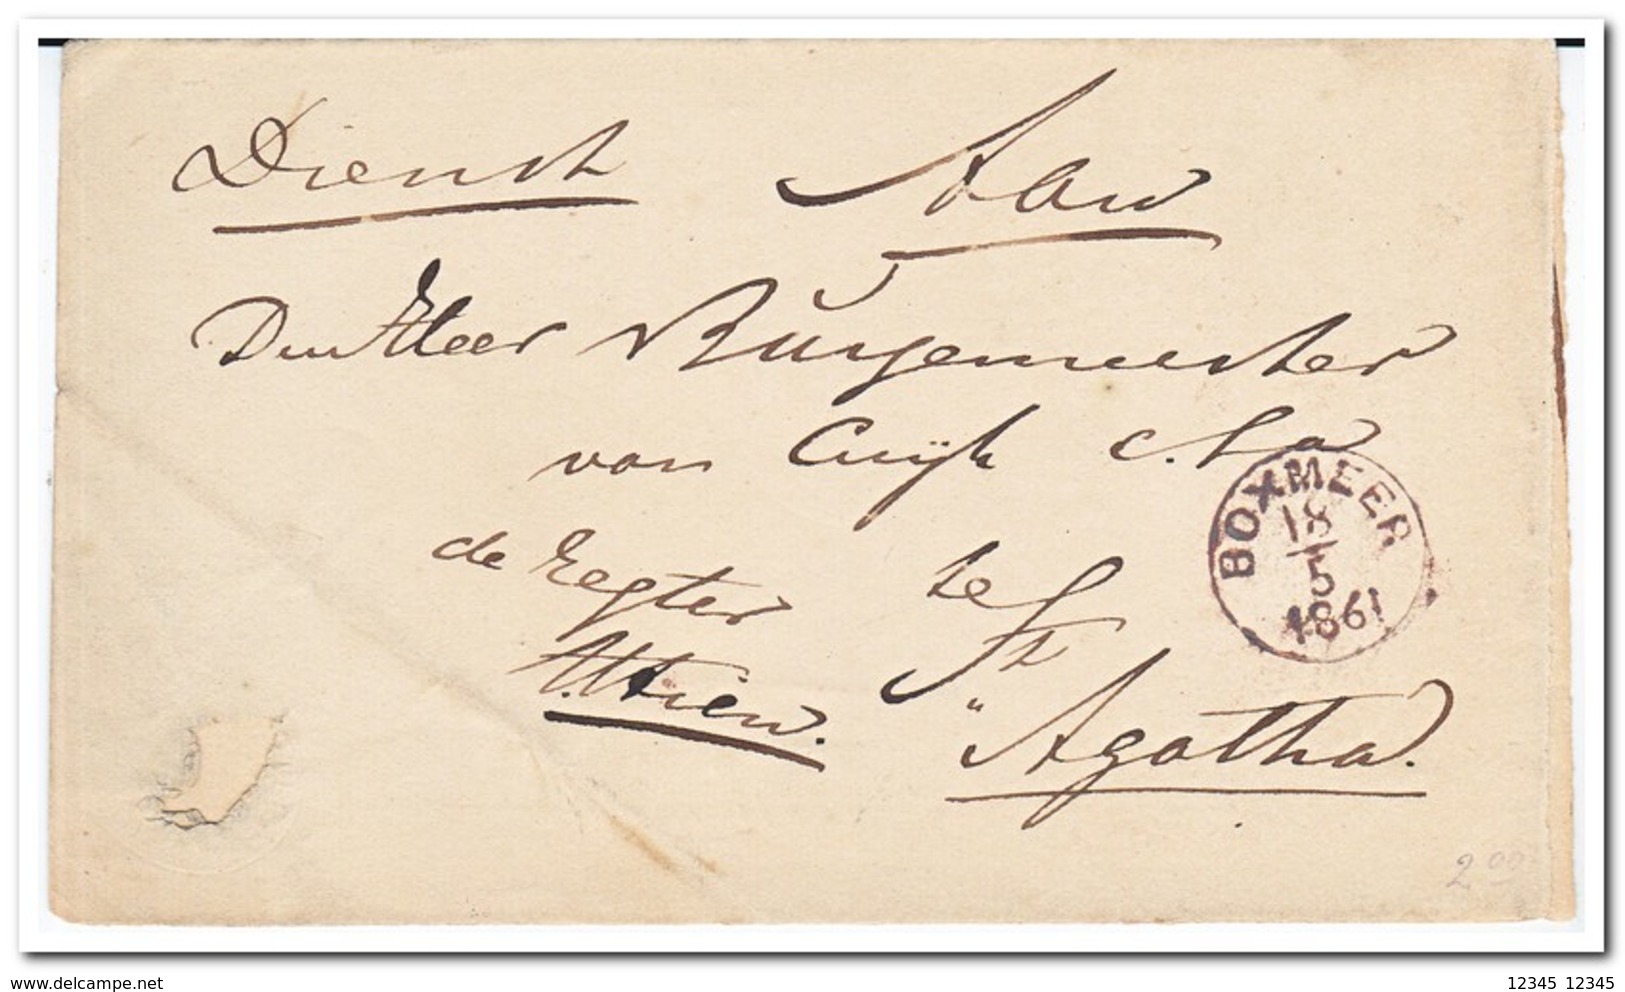 Dienst
Den Heer Burgemeester
van Cuijk c.a.
de Regter
te
St Agatha.
BOXMEER
18
5
1861
2 00
www.delcampe.net
12345 12345